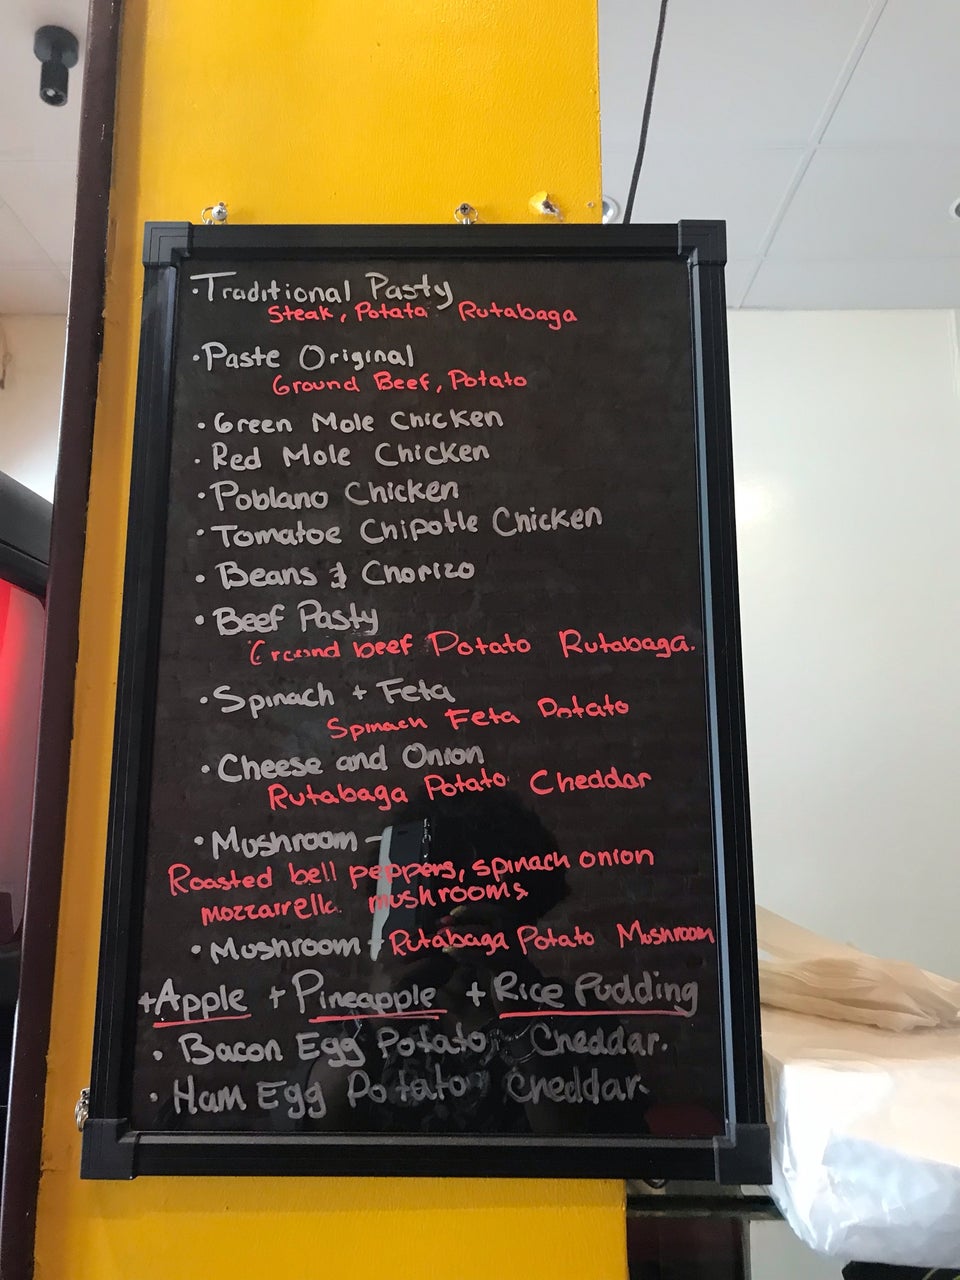 ·Traditional Pasty
Steak, Potato Rutabaga
·Paste Original
Ground Beef, Potato
·Green Mole Chicken
·Red Mole Chicken
·Poblano Chicken
·Tomatoe Chipotle Chicken
·Beans & Chorizo
·Beef Pasty
Ground beef Potato Rutabaga.
·Spinach + Feta
Spinach Feta Potato
·Cheese and Onion
Rutabaga Potato Cheddar
·Mushroom -
Roasted bell peppers, spinach onion
mozzarrella. mushrooms
·Mushroom + Rutabaga Potato Mushroom
+Apple + Pineapple + Rice Pudding
·Bacon Egg Potato Cheddar.
·Ham Egg Potato Cheddar